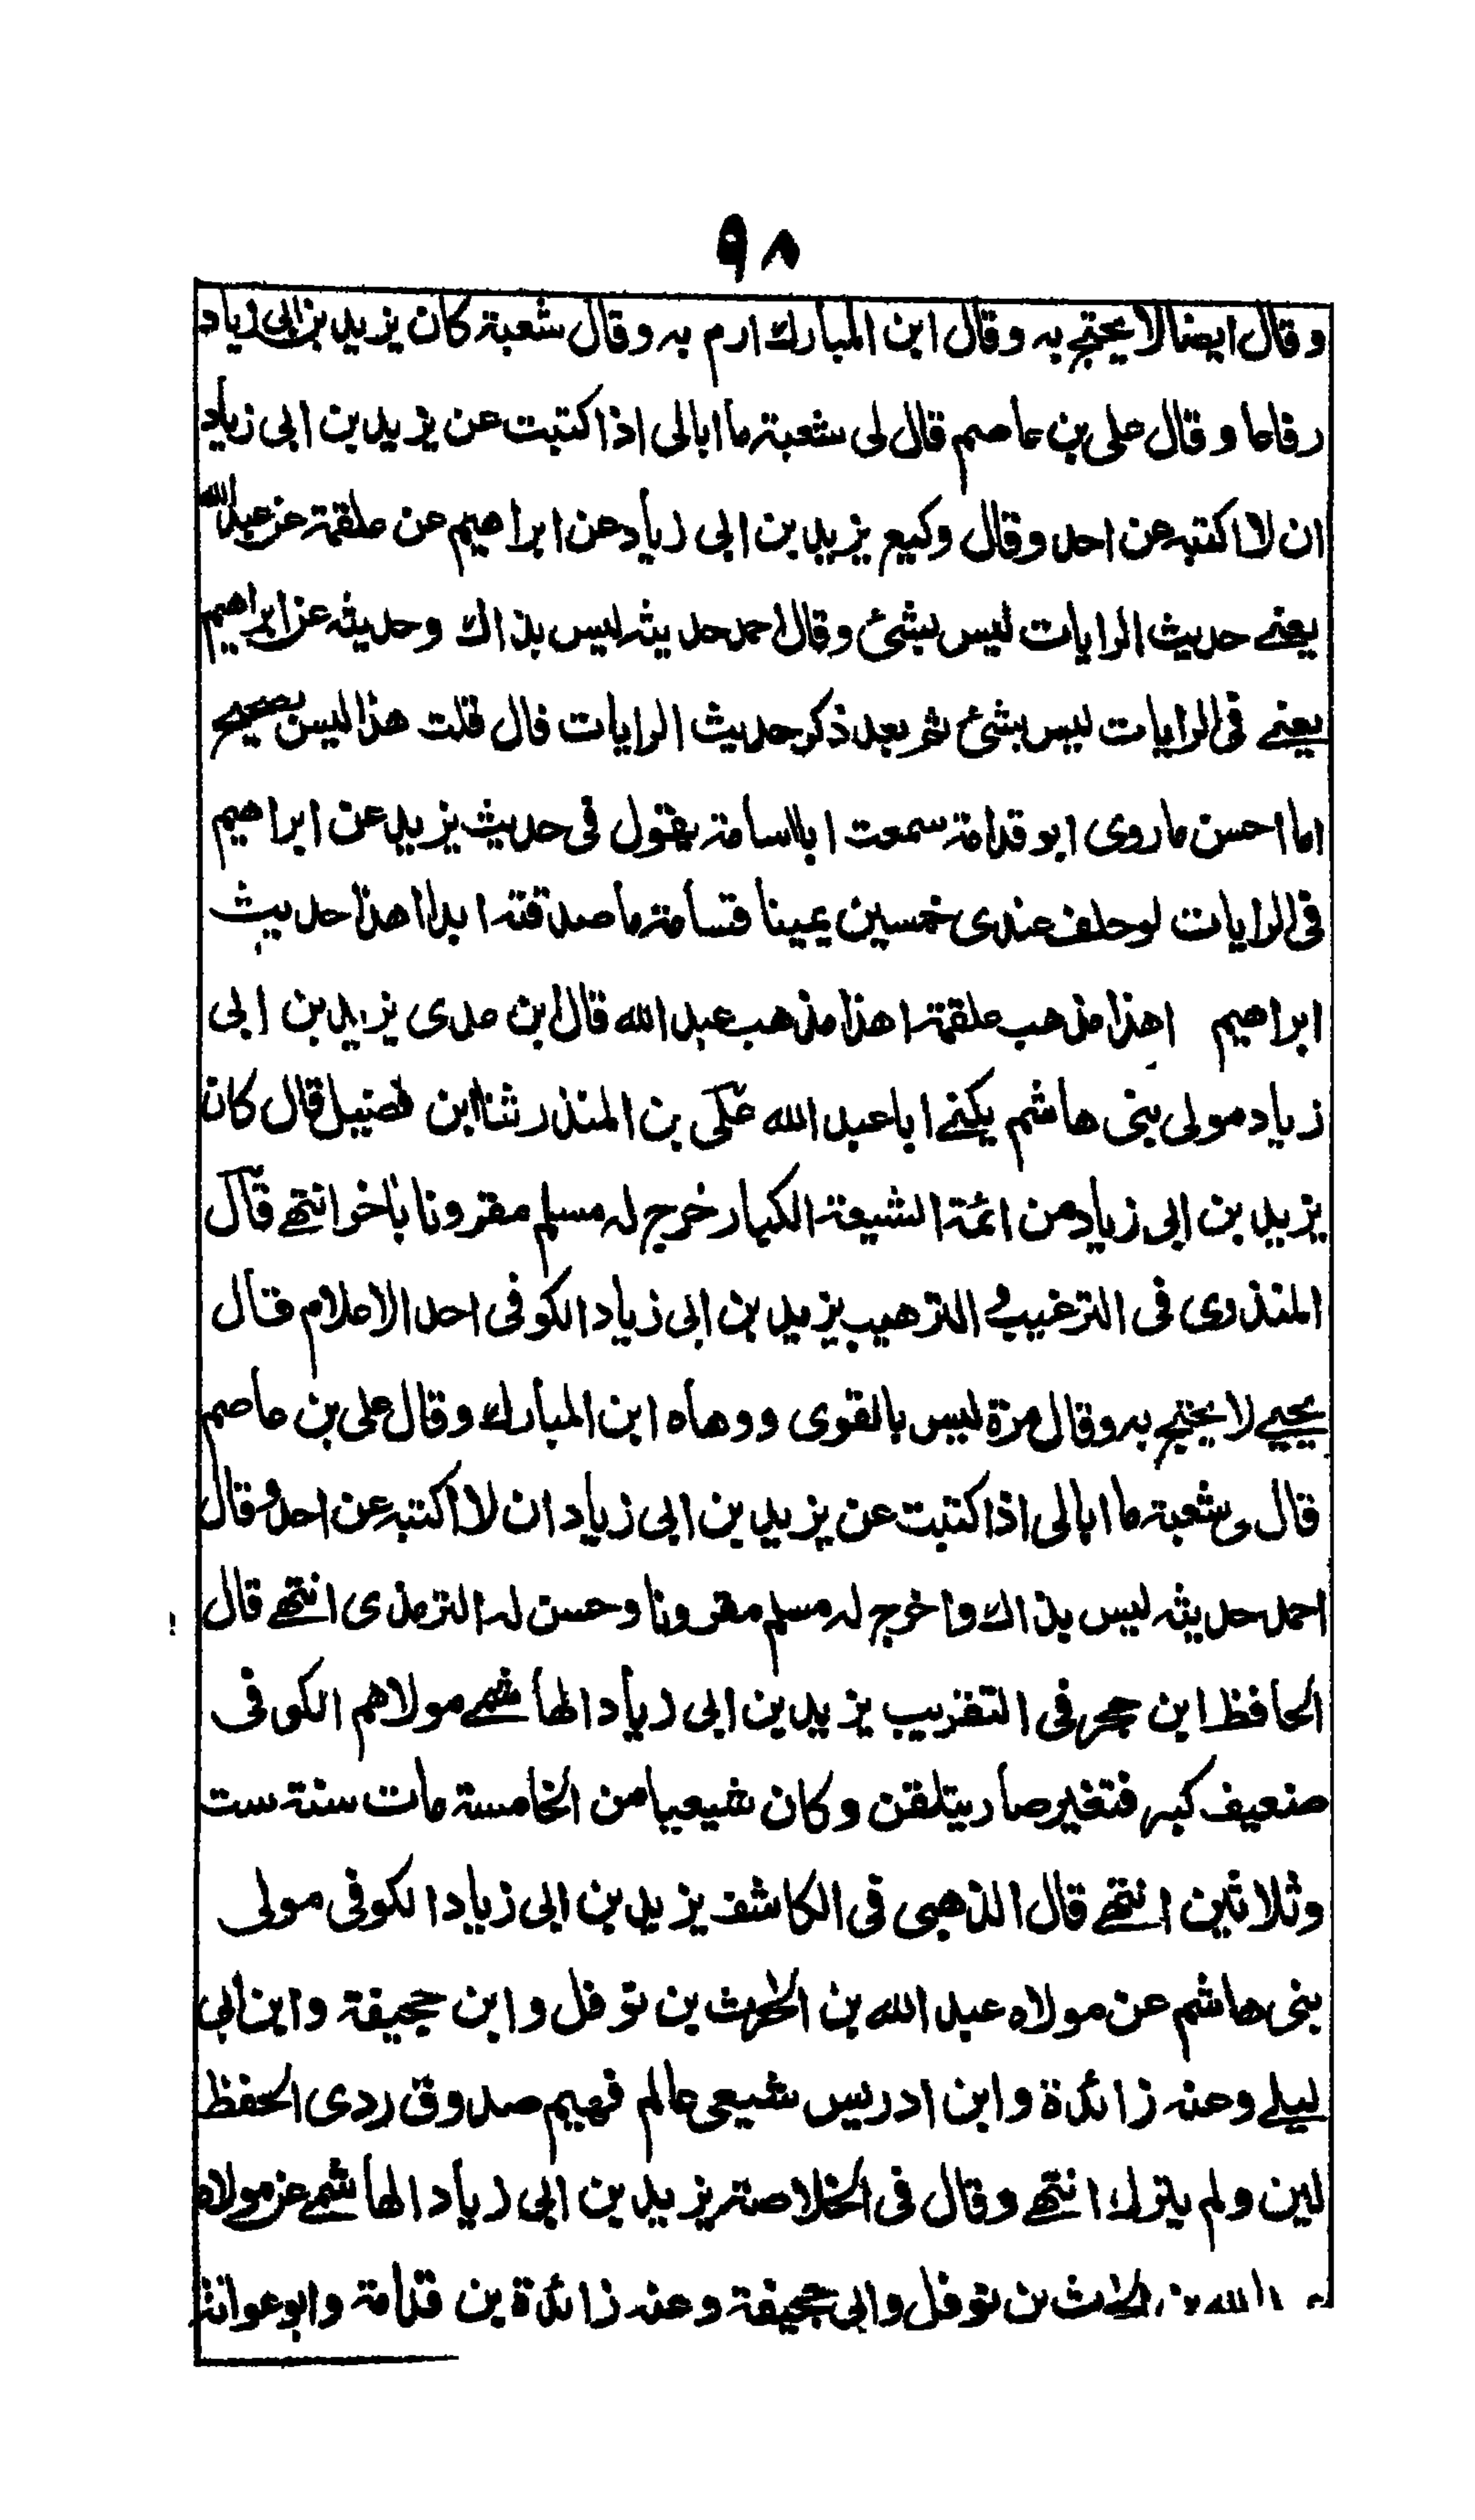 ٩٨
وقال ايضا لا يحتج به وقال ابن المبارك ارم به وقال شعبة كان يزيد بن ابى زياد
رفاعا وقال على بن عاصم قال لى شعبة ما ابالى اذا كتبت عن يزيد بن ابى زياد
ان لا اكتبه عن احد وقال وكيع يزيد بن ابى زياد عن ابراهيم عن علقمة عن عبد الله
يعنے حديث الرايات ليس بشئ وقال احمد حديثه ليس بذاك وحديثه عن ابراهيم
يعنے فى الرايات ليس بشئ ثم بعد ذكر حديث الرايات قال قلت هذا ليس بصحيح
اما احسن ما روى ابو قدامة سمعت ابا اسامة يقول فى حديث يزيد عن ابراهيم
فى الرايات لو حلف عندى خمسين يمينا قسامة ما صدقته ابدا اهذا حديث
ابراهيم اهذا مذهب علقمة اهذا مذهب عبد الله قال ابن عدى يزيد بن ابى
زياد مولى بنى هاشم يكنے ابا عبد الله على بن المنذر ثنا ابن فضيل قال كان
يزيد بن ابى زياد من ائمة الشيعة الكبار خرج له مسلم مقرونا باخر انتهے قال
المنذرى فى الترغيب و الترهيب يزيد بن ابى زياد الكوفى احد الاعلام قال
يحيے لا يحتج به وقال مرة ليس بالقوى ووهاه ابن المبارك وقال على بن عاصم
قال لى شعبة ما ابالى اذا كتبت عن يزيد بن ابى زياد ان لا اكتبه عن احد وقال
احمد حديثه ليس بذاك واخرج له مسلم مقرونا وحسن له الترمذى انتهے قال
الحافظ ابن حجر فى التقريب يزيد بن ابى زياد الهاشمے مولاهم الكوفى
ضعيف كبر فتغير صار يتلقن وكان شيعيا من الخامسة مات سنة ست
وثلاثين انتهے قال الذهبى فى الكاشف يزيد بن ابى زياد الكوفى مولى
بنى هاشم عن مولاه عبد الله بن الحارث بن نوفل وابن جحيفة وابن ابى
ليلے وعنه زائدة وابن ادريس شيعى عالم فهيم صدوق ردى الحفظ
لين ولم يترك انتهے وقال فى الخلاصة يزيد بن ابى زياد الهاشمے عن مولاه
الله بن الحارث بن نوفل وابى جحيفة وعنه زائدة بن قدامة وابو عوانة